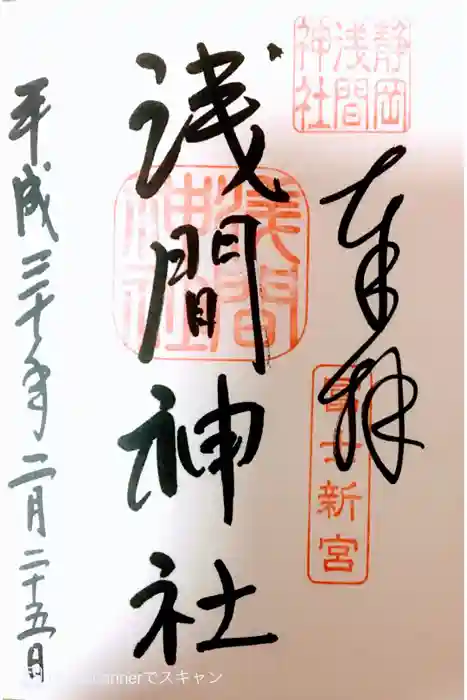 静岡
浅間
神社
奉拝
冨士新宮
浅間神社
浅間
神社
平成三十年二月二十五日
nnerでスキャン